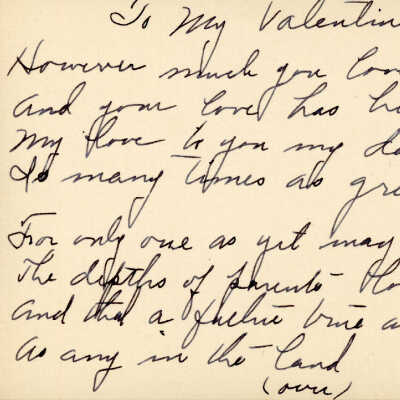 To My Valentin
However much you lov
And your love has
My love to you my d
Is many times as gre
For only one as yet may
The depths of parents
And that a father true a
As any in the land
(over)